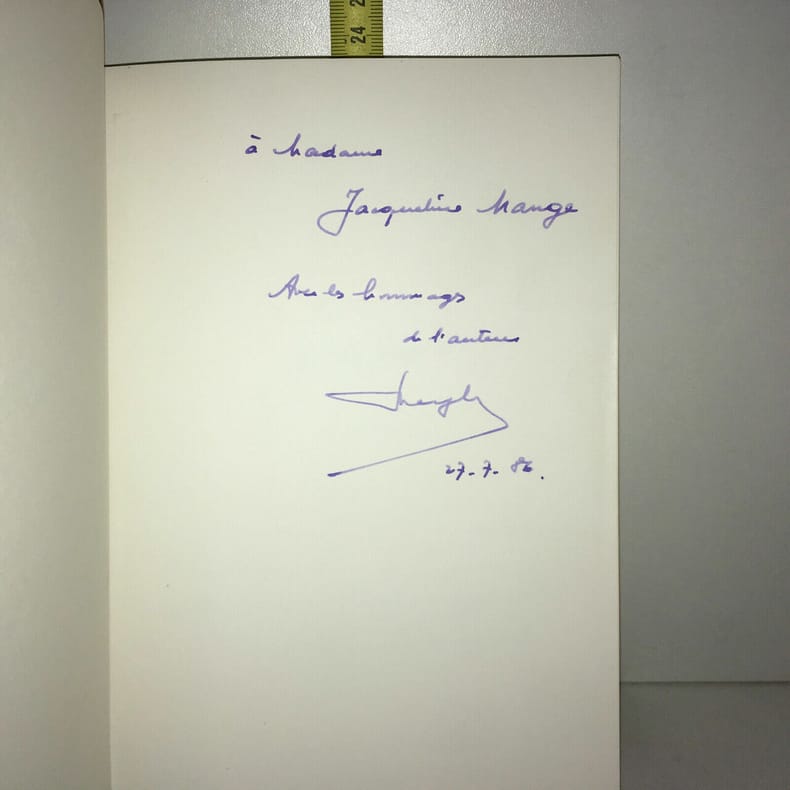 24 2
à Madame
Jacqueline Mange
Avec les hommages
de l'auteur
27-7-86.